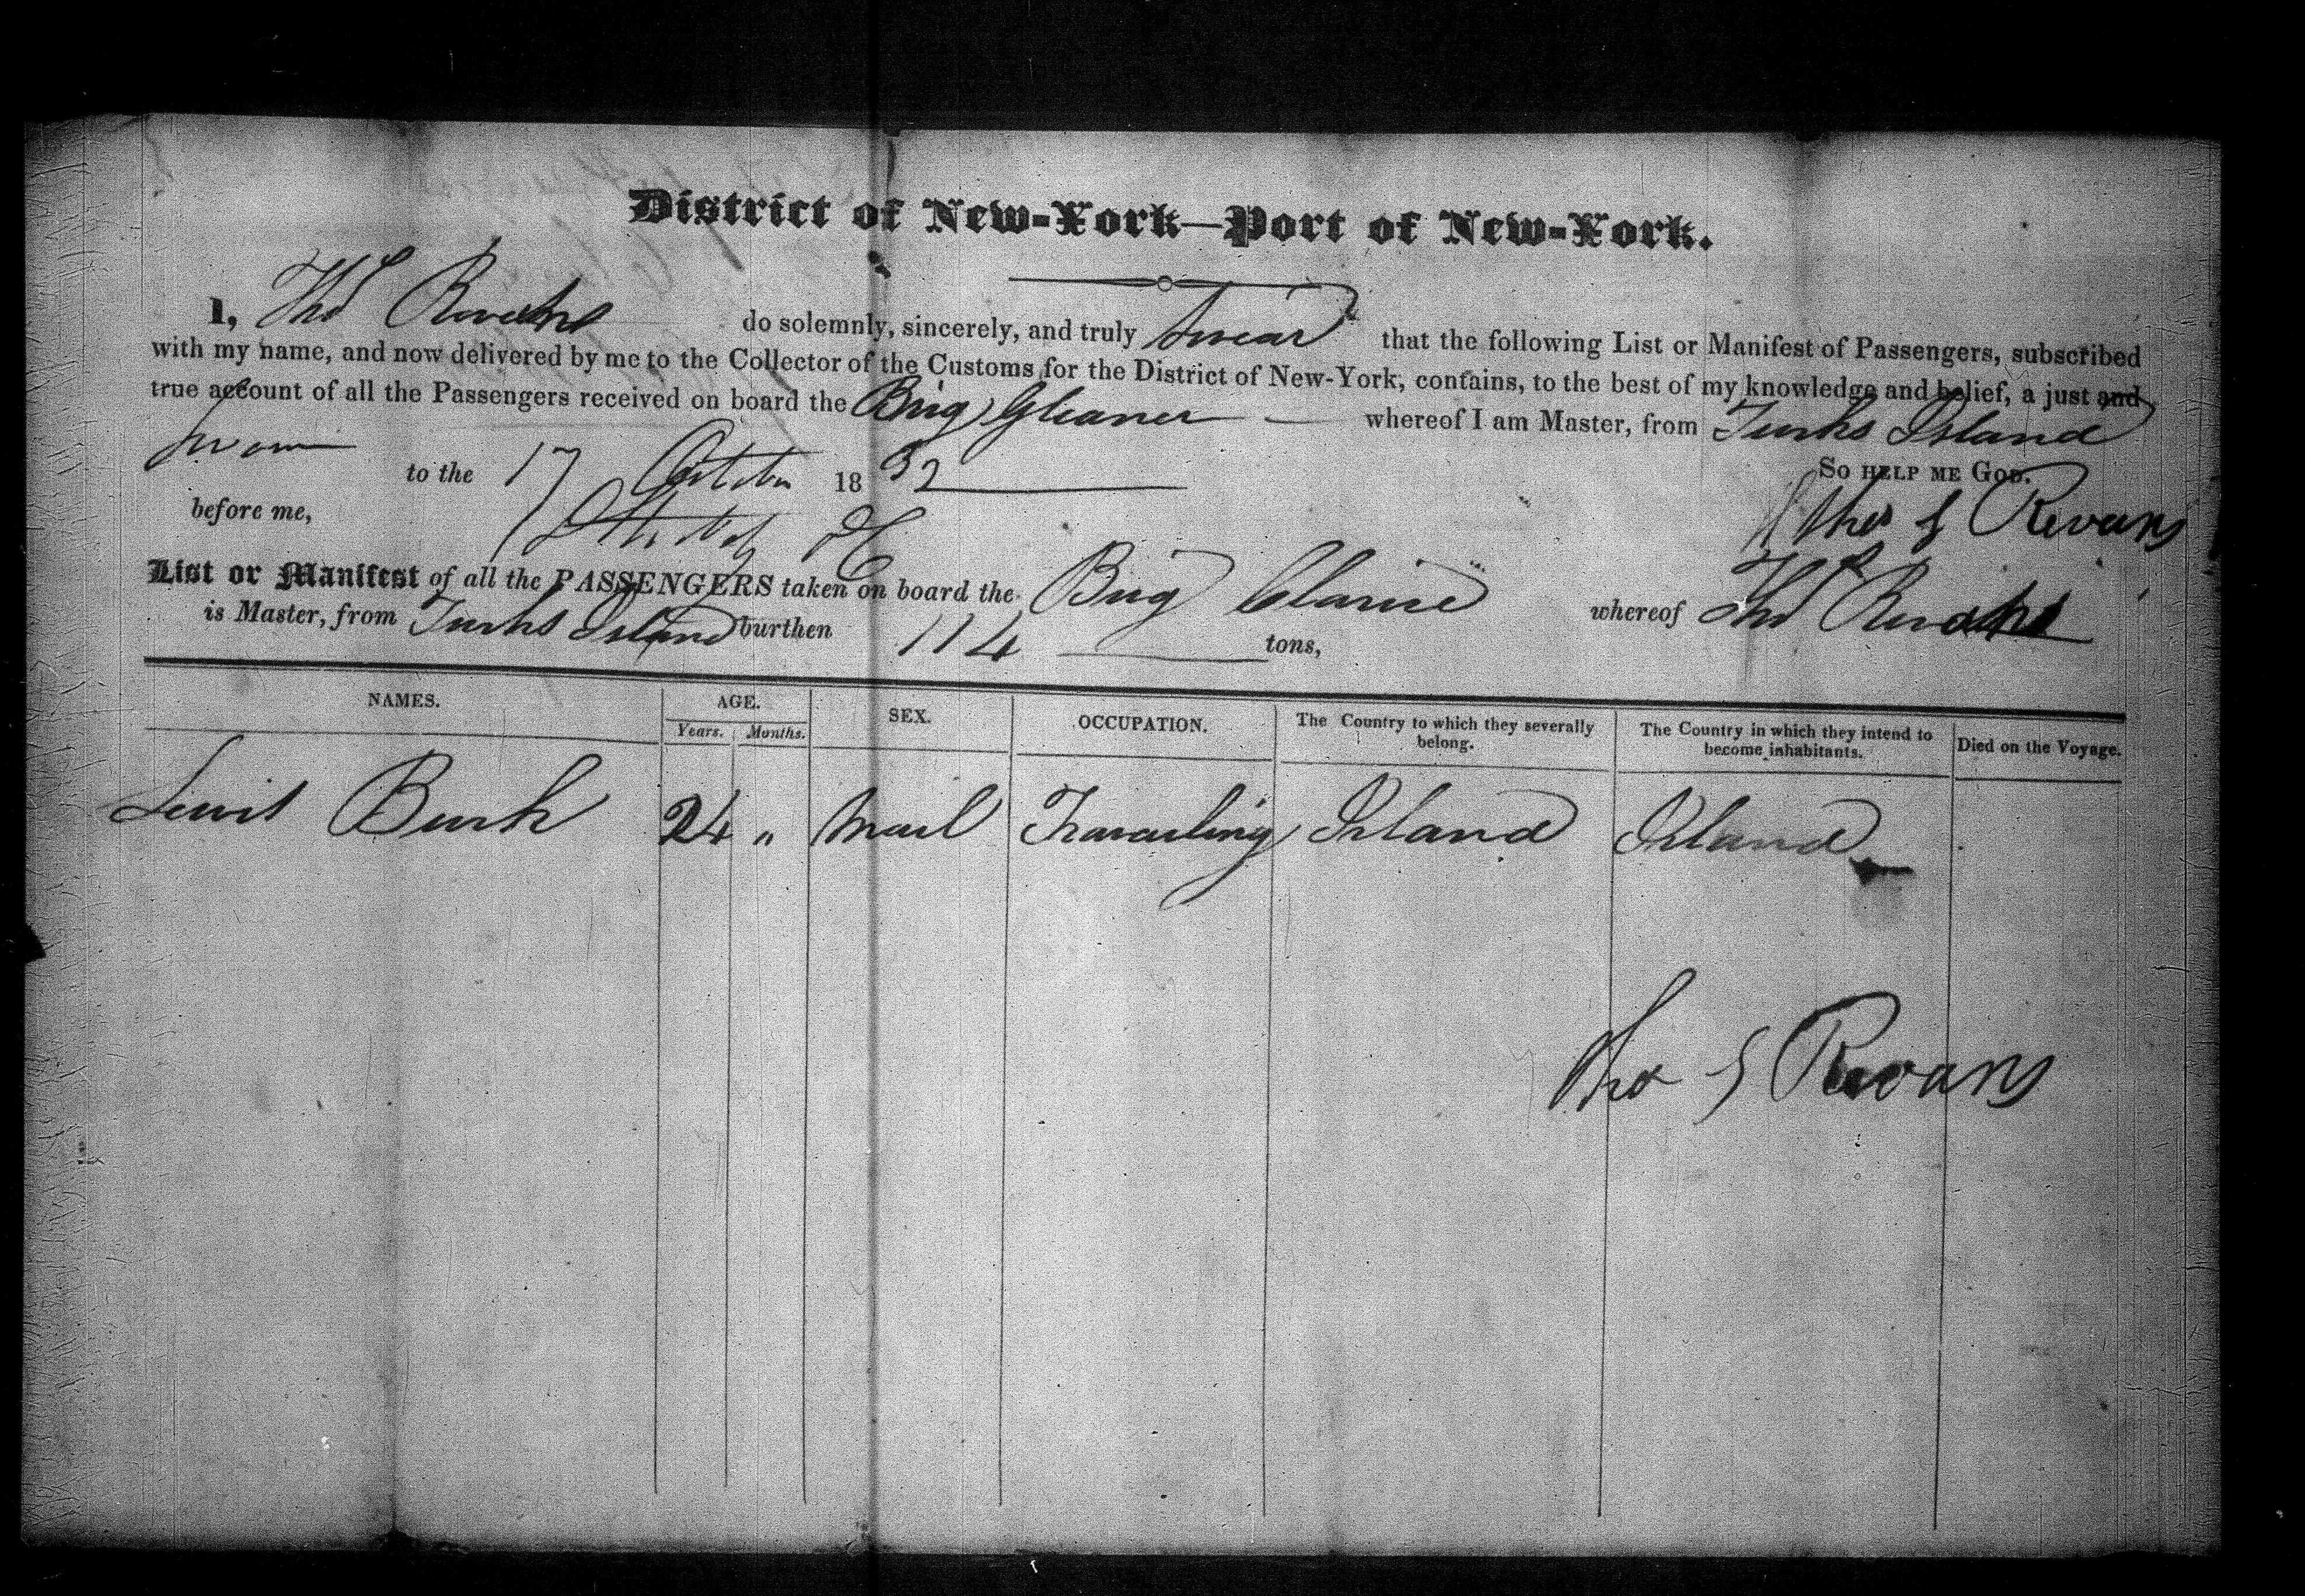 District of New-York—Port of New-York.
I, Thos Revans do solemnly, sincerely, and truly swear that the following List or Manifest of Passengers, subscribed
with my name, and now delivered by me to the Collector of the Customs for the District of New-York, contains, to the best of my knowledge and belief, a just and
true account of all the Passengers received on board the Brig Gleaner whereof I am Master, from Turks Island
Sworn to the 17 October 1832 So help me God.
before me, Thos S Revans
List or Manifest of all the PASSENGERS taken on board the Brig whereof Thos Revans
is Master, from Turks Island burthen 114 tons,
NAMES. AGE. SEX. OCCUPATION. The Country to which they severally belong. The Country in which they intend to become inhabitants. Died on the Voyage.
Years. Months.
Lewis Burk 24 " Mail Travailing Island Island
Thos S Revans